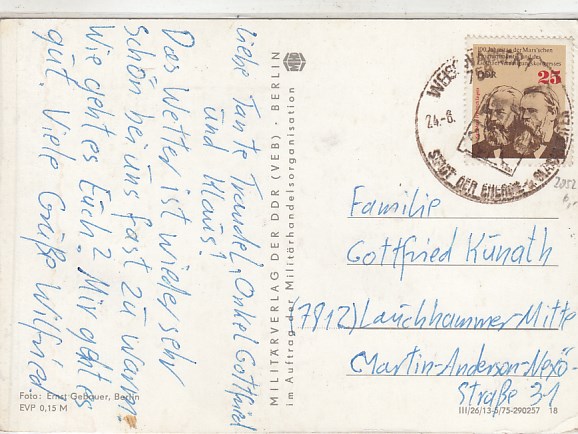 Liebe Tante Traudel, Onkel Gottfried
und Klaus!
Das Wetter ist wieder sehr
schön bei uns fast zu warm.
Wie geht es Euch? Mir geht es
gut. Viele Grüße Wilfried
Foto: Ernst Gebauer, Berlin
EVP 0,15 M
MILITÄRVERLAG DER DDR (VEB) · BERLIN
im Auftrag der Militärhandelsorganisation
DDR
25
WEISSWASSER
758
24.-6.
STADT DER ENERGIE- u. GLAS
2052
Familie
Gottfried Kunath
(7812) Lauchhammer-Mitte
Martin-Anderson-Nexö-
Straße 31
III/26/13-5/75-290257 18